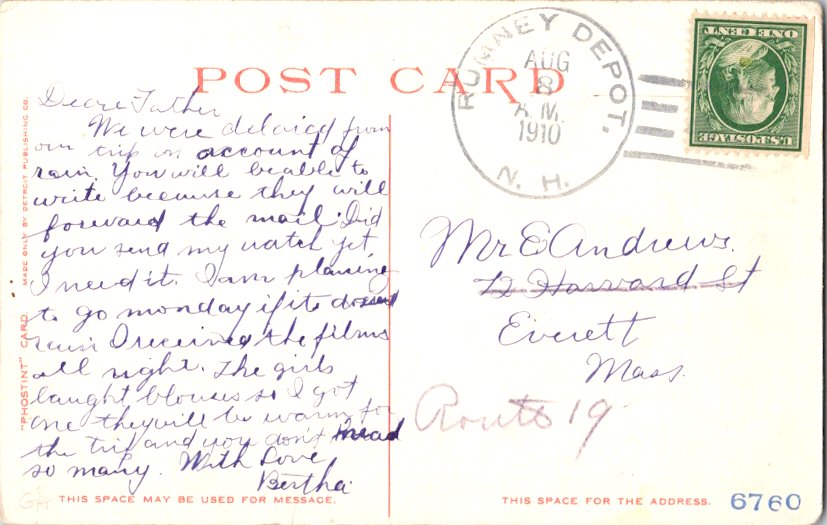 POST CARD
RUMNEY DEPOT,
AUG
8
A.M.
1910
N. H.
ONE CENT
U.S. POSTAGE
Deare Father
We were delaied from
our trip on account of
rain. You will be able to
write because they will
forward the mail. Did
you send my watch yet
I need it. I am planing
to go monday if it
rain I received the films
all right. The girls
baught blouses so I got
one they will be warm for
the trip and you don't
so many. With Love
Bertha.
Mr E Andrews.
12 Harvard St
Everett
Mass.
Route 19
"PHOSTINT" CARD MADE ONLY BY DETROIT PUBLISHING CO.
THIS SPACE MAY BE USED FOR MESSAGE.
THIS SPACE FOR THE ADDRESS.
6760